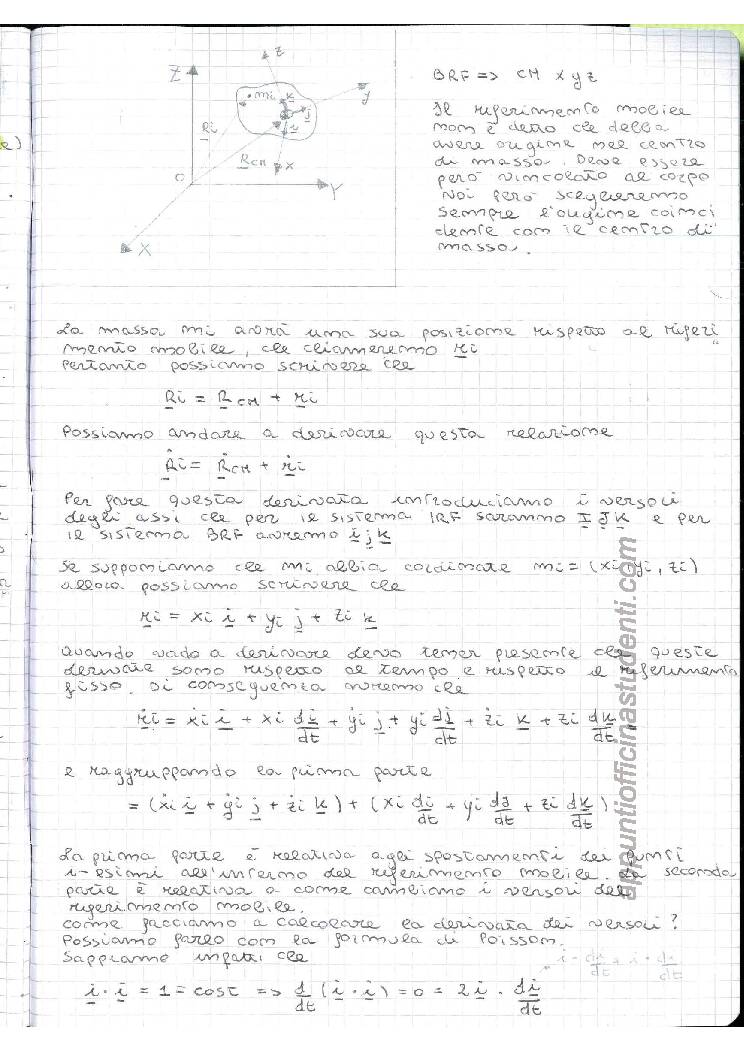 BRF => CM x y z
Il riferimento mobile
non è detto che debba
avere origine nel centro
di massa. Deve essere
però vincolato al corpo
Noi però sceglieremo
sempre l'origine coinci
dente con il centro di
massa.
Z
z
mi
k
y
j
Ri
i
RCM
x
O
Y
X
La massa mi avrà una sua posizione rispetto al riferi
mento mobile, che chiameremo ri
Pertanto possiamo scrivere che
Ri = RCM + ri
Possiamo andare a derivare questa relazione
Ṙi = ṘCM + ṙi
Per fare questa derivata introduciamo i versori
degli assi che per il sistema IRF saranno I J K e per
il sistema BRF avremo i j k
Se supponiamo che mi abbia coordinate mi = (xi, yi, zi)
allora possiamo scrivere che
ri = xi i + yi j + zi k
Quando vado a derivare devo tener presente che queste
derivate sono rispetto al tempo e rispetto il riferimento
fisso. Di conseguenza avremo che
ṙi = ẋi i + xi di/dt + ẏi j + yi dj/dt + żi k + zi dk/dt
e raggruppando la prima parte
= (ẋi i + ẏi j + żi k) + (xi di/dt + yi dj/dt + zi dk/dt)
La prima parte è relativa agli spostamenti dei punti
i-esimi all'interno del riferimento mobile. La seconda
parte è relativa a come cambiano i versori del
riferimento mobile.
Come facciamo a calcolare la derivata dei versori?
Possiamo farlo con la formula di Poisson.
Sappiamo infatti che
i · di/dt + i · di/dt
i · i = 1 = cost => d/dt (i · i) = 0 = 2 i · di/dt
appuntiofficinastudenti.com